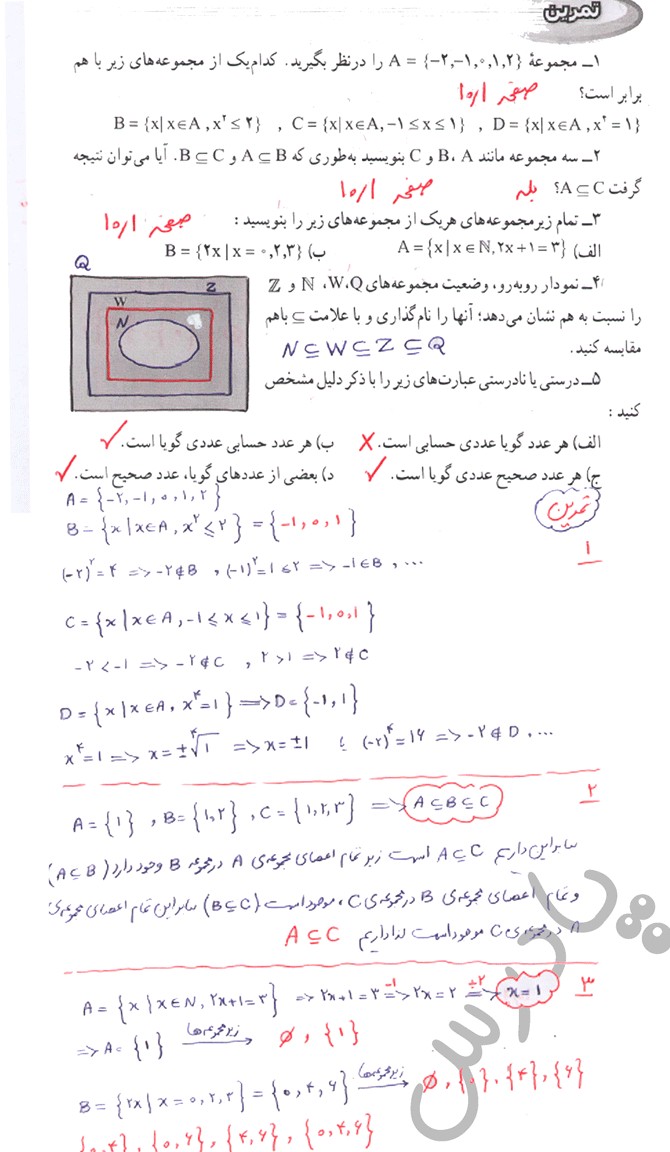 تمرین
۱ــ مجموعهٔ A = {−۲,−۱,۰,۱,۲} را درنظر بگیرید. کدام‌یک از مجموعه‌های زیر با هم
برابر است؟ صفحه ۱۰۱
B = {x | x∈A , x² ≤ ۲} , C = {x | x∈A, −۱ ≤ x ≤ ۱} , D = {x | x∈A , x⁴ = ۱}
۲ــ سه مجموعه مانند A، B و C بنویسید به‌طوری که A ⊆ B و B ⊆ C. آیا می‌توان نتیجه
گرفت A ⊆ C؟ بله صفحه ۱۰۱
۳ــ تمام زیرمجموعه‌های هریک از مجموعه‌های زیر را بنویسید : صفحه ۱۰۱
الف) A = {x | x∈ℕ, ۲x+۱=۳} ب) B = {۲x | x = ۰,۲,۳}
۴ــ نمودار روبه‌رو، وضعیت مجموعه‌های W،Q، ℕ و ℤ
را نسبت به هم نشان می‌دهد؛ آنها را نام‌گذاری و با علامت ⊆ باهم
مقایسه کنید. N ⊆ W ⊆ Z ⊆ Q
Q
Z
W
N
۵ــ درستی یا نادرستی عبارت‌های زیر را با ذکر دلیل مشخص
کنید :
الف) هر عدد گویا عددی حسابی است. ✗ ب) هر عدد حسابی عددی گویا است. ✓
ج) هر عدد صحیح عددی گویا است. ✓ د) بعضی از عددهای گویا، عدد صحیح است. ✓
تمرین
۱
A = {-۲, -۱, ۰, ۱, ۲}
B = {x | x∈A, x² ≤ ۲} = {-۱, ۰, ۱}
(-۲)² = ۴ => -۲∉B , (-۱)² = ۱ ≤ ۲ => -۱∈B , ...
C = {x | x∈A, -۱ ≤ x ≤ ۱} = {-۱, ۰, ۱}
-۲ < -۱ => -۲∉C , ۲ > ۱ => ۲∉C
D = {x | x∈A, x⁴=۱} => D = {-۱, ۱}
x⁴=۱ => x = ±⁴√۱ => x = ±۱ یا (-۲)⁴ = ۱۶ => -۲∉D , ...
۲
A = {۱} , B = {۱,۲} , C = {۱,۲,۳} => A ⊆ B ⊆ C
بنابراین داریم A ⊆ C است زیرا تمام اعضای مجموعه‌ی A در مجموعه B وجود دارد (A ⊆ B)
و تمام اعضای مجموعه‌ی B در مجموعه‌ی C موجود است (B ⊆ C) بنابراین تمام اعضای مجموعه‌ی
A در مجموعه‌ی C موجود است لذا داریم A ⊆ C
۳
A = {x | x∈N, ۲x+۱=۳} => ۲x+۱=۳ -۱=> ۲x=۲ ÷۲=> x=۱
=> A = {۱} زیرمجموعه‌ها ∅ , {۱}
B = {۲x | x=۰,۲,۳} = {۰,۴,۶} زیرمجموعه‌ها ∅ , {۰} , {۴} , {۶}
{۰,۴} , {۰,۶} , {۴,۶} , {۰,۴,۶}
پادرس